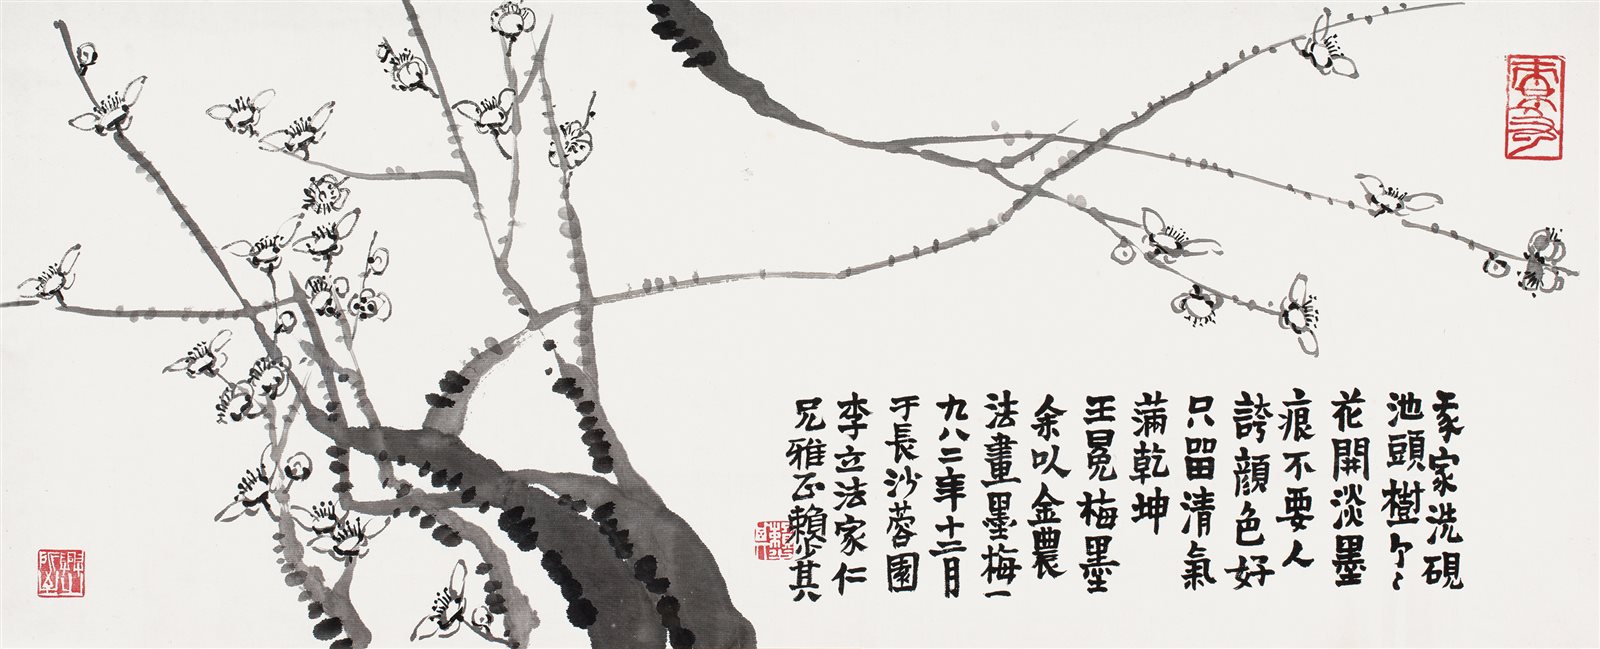 我家洗硯
池頭樹个〻
花開淡墨
痕不要人
誇顔色好
只留清氣
滿乾坤
王冕梅墨
余以金農
法畫墨梅一
九八二年十二月
于長沙蓉園
李立法家仁
兄雅正賴少其
興之所至